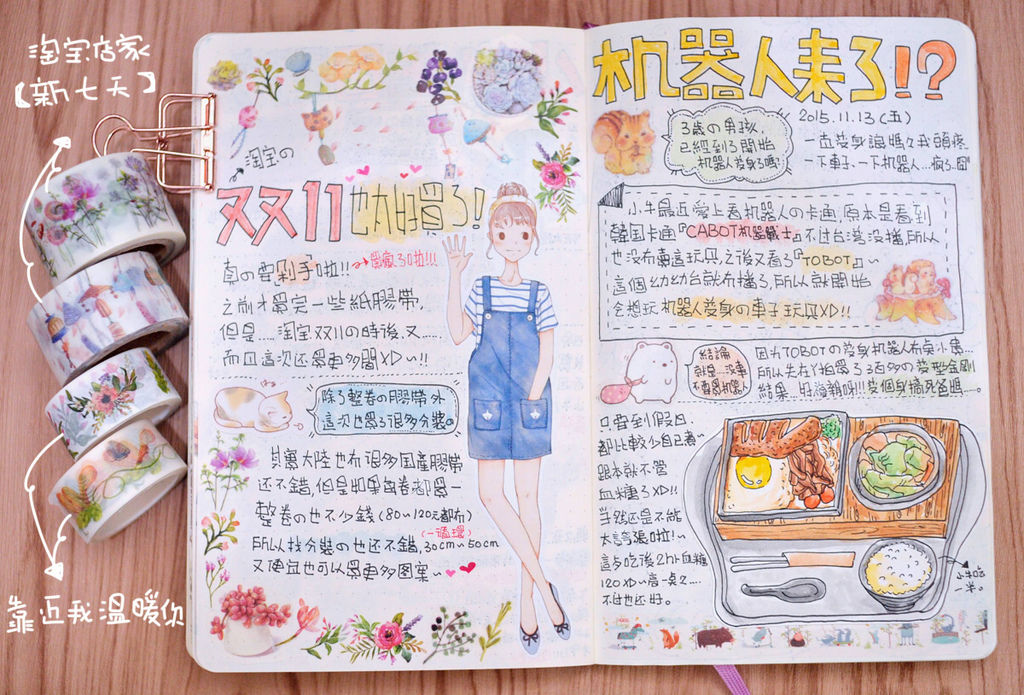 淘宝店家
【新七天】
靠近我温暖你
淘宝の
双双11也太好買了!
真の要剁手啦!!
買瘋了啦!!!
之前才買完一些紙膠帶,
但是……淘宝双11の時後,又……
而且這次还買更多閞XD~!!
除了整卷の膠帶外
這次也買了很多分裝。
其實大陸也有很多国產膠帶
还不錯,但是如果每卷都買一
整卷の也不少錢(80~120元都有)
(一循環)
所以找分裝の也还不錯,30cm~50cm
又便宜也可以買更多图案~
机器人来了!?
2015.11.13(五)
3歲の男孩,
已經到了開始
机器人变身了嗎?
一直变身讓媽々我頭疼
一下車子、一下机器人…瘋了囧
小牛最近愛上看机器人の卡通,原本是看到
韓国卡通『CABOT机器戰士』不过台灣沒播,所以
也沒有賣這玩具,之後又看了『TOBOT』~
這個幼幼台就有播了,所以就開始
会想玩机器人变身の車子玩具XD!!
結論
就是…沒事
不要買机器人
因为TOBOTの变身机器人有桌小貴…
所以先在丫拍買了3百多の变型金剛
結果…好海朝呀!!变個身搞死爸媽……。
只要到假日
都比較少自己煮~
跟本就不管
血糖了XD!!
当然还是不能
太誇張啦!~
這多吃後2h血糖
120XD~高一桌2….
不过也还好。
小牛吃
一半。